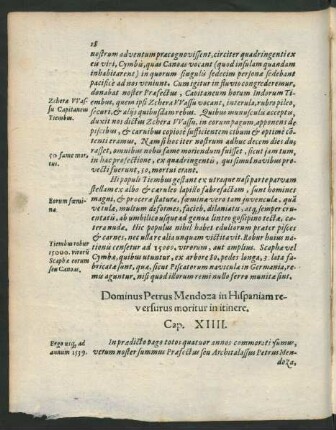 18
nostrum adventum præcognovissent, circiter quadringenti ex
eu viri, Cymbu, quas Canoas vocant (quod insulam quandam
inhabitarent) in quorum singulis sedecim personæ sedebant
pacificè ad nos venirent. Cum igitur in fluvio congrederemur,
Zchera VVas-
su Capitaneus
Tiembus.
donabat noster Præfectus, Capitaneum horum Indorum Ti-
embus, quem ipsi Zchera VVassu vocant, interula, rubro pileo,
securi, & aliis quibusdam rebus. Quibus munusculis acceptis,
duxit nos dictus Zchera VVassu, in eorum pagum, apponens de
piscibus, & carnibus copiosè sufficientem cibum & optimè con-
tenti eramus. Nam si hoc iter nostrum adhuc decem dies du-
50 fame mor-
tui.
rasset, omnibus nobis fame moriendum fuisset, sicut jam tum,
in hac profectione, ex quadringentis, qui simul navibus pro-
vecti fuerunt, 50, mortui erant.
Hi populi Tiembus gestant ex utraque nasi parte parvam
stellam ex albo & cæruleo lapillo fabrefactam, sunt homines
Eorum fœmi-
næ.
magni, & proceræ staturæ, fœminæ verò tam juvenculæ, quàm
vetulæ, multum deformes, facieb. dilaniatis, atq; semper cruen-
tatis, ab umbilico usque ad genua linteo gossipino tectæ, cæ-
tera nudæ. Hic populus nihil habet eduliorum præter pisces
& carnes, nec ullare alia unquam victitavit. Robur hujus na-
Tiembus robur
15000. virorū
Scaphæ eorum
seu Canoæ.
tionis censetur ad 15000. virorum, aut amplius. Scaphæ vel
Cymbæ, quibus utuntur, ex arbore 80. pedes longa, 3. lata fa-
bricatæ sunt, quæ, sicut Piscatorum naviculæ in Germania, re-
mis aguntur, nisi quod illorum remi nullo ferro muniti sunt.
Dominus Petrus Mendoza in Hispaniam re-
versurus moritur in itinere.
Cap. XIIII.
Ergo usq; ad
annum 1539.
In prædicto pago totos quatuor annos commorati sumus,
verum noster summus Præfectus seu Architalassus Petrus Men-
doza,